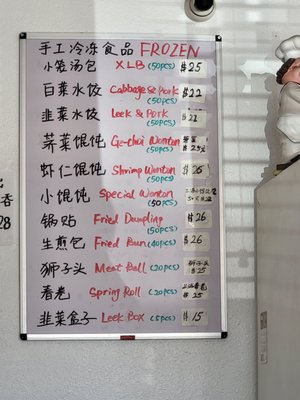 手工冷冻食品 FROZEN
小笼汤包 XLB (50pcs) $25
白菜水饺 Cabbage & Pork $22
(50pcs)
韭菜水饺 Leek & Pork $22
(50pcs)
荠菜馄饨 Ge-chui Wonton
(50pcs)
虾仁馄饨 Shrimp Wonton $26
(50pcs)
小馄饨 Special Wonton
(50pcs)
锅贴 Fried Dumpling $26
(50pcs)
生煎包 Fried Bun (40pcs) $26
狮子头 Meat Ball (20pcs) 狮子头
$25
春卷 Spring Roll (20pcs) $25
韭菜盒子 Leek Box (5pcs) $15
28